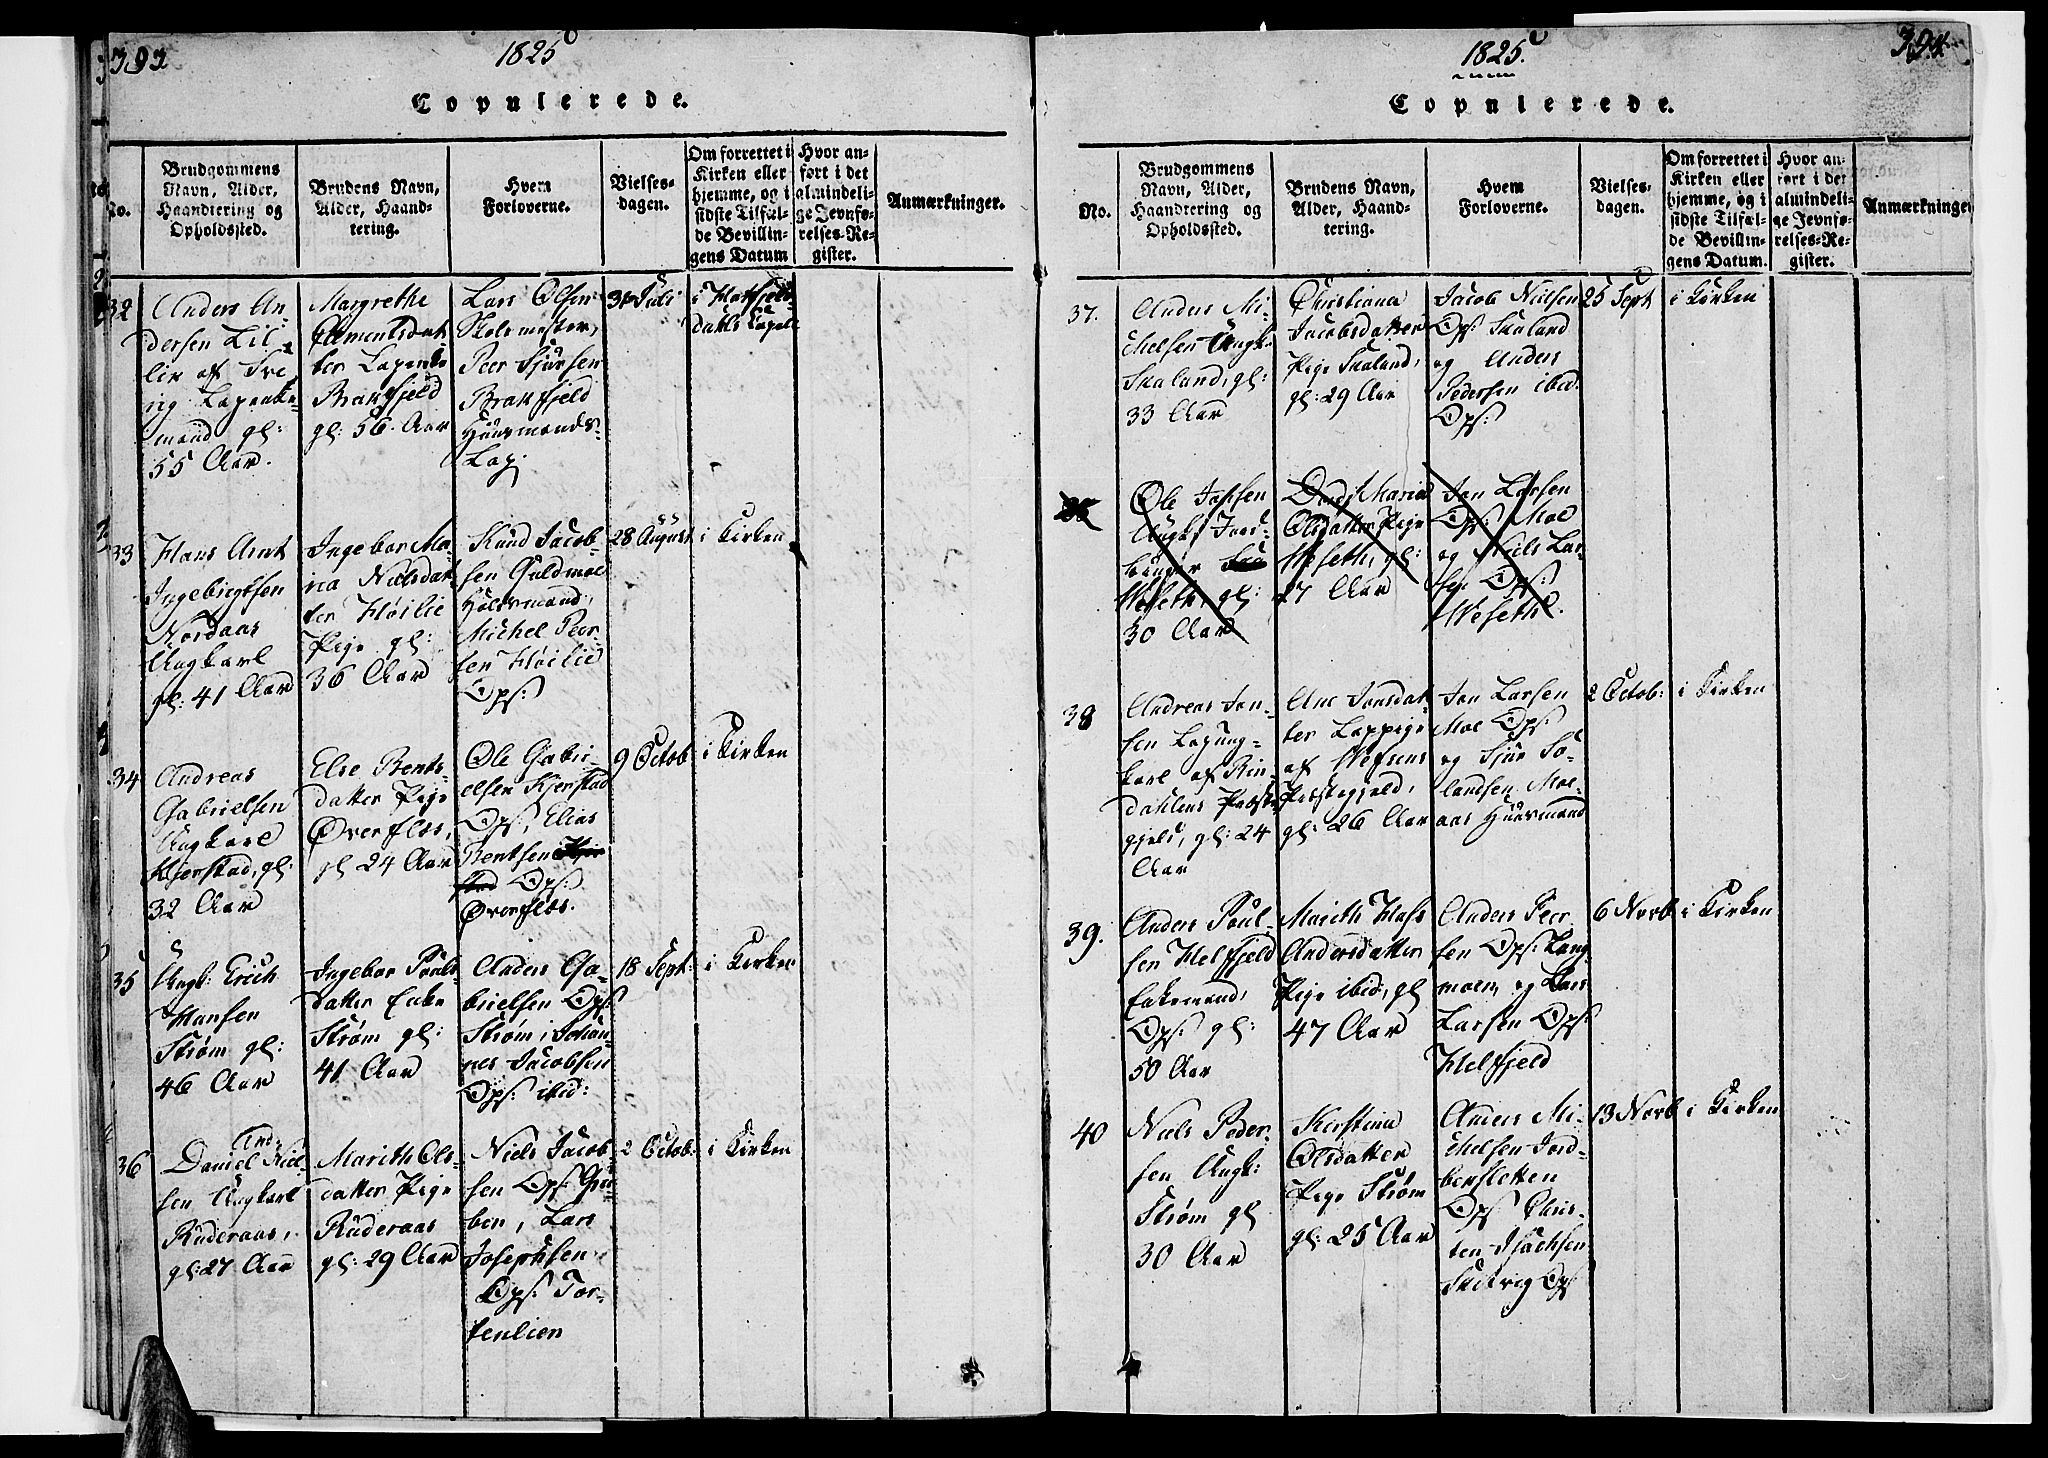 393
1825
Copulerede.
No.
Brudgommens
Navn, Alder,
Haandtering og
Opholdssted.
Brudens Navn,
Alder, Haand-
tering.
Hvem
Forloverne.
Vielses-
dagen.
Om forrettet i
Kirken eller
hjemme, og i
sidste Tilfæl-
de Bevillin-
gens Datum
Hvor an-
ført i det
almindeli-
ge Jevnfø-
relses-Re-
gister.
Anmærkninger.
32
Anders An-
dersen Lil-
lie af Sve-
rig
mand gl:
55 Aar.
Margrethe
Clementsdat
ter
Brakfjeld
gl: 56 Aar
Lars Olsen
Skolemester,
Peer Sjursen
Brakfjeld
Huusmands-
Lap:
31 Juli
i Hatfjeld-
dahls Capel
33
Hans Arnt
Ingebrigtsen
Nordaas
Ungkarl
gl: 41 Aar
Ingebor Ma-
ria Nielsdat
ter Høilie
Pige gl:
36 Aar
Knud Jacob-
sen Guldmoe
Michel Peer-
sen Høilie
Ops:
28 August
i Kirken
34
Andreas
Gabrielsen
Ungkarl
Kjerstad, gl:
32 Aar
Else Bents-
datter Pige
Øverflæs,
gl 24 Aar
Ole Gabri-
elsen Kjerstad
Ops, Elias
Bentsen
Ops:
Øverflæs.
9 Octob
i Kirken
35
Ungk: Erich
Hansen
Strøm gl:
46 Aar
Ingebor Pouls
datter Enke
Strøm gl:
41 Aar
Anders Ga-
brielsen Ops
Strøm, Johan-
nes Jacobsen
Ops: ibid:
18 Sept:
i Kirken
36
And:
Daniel Niel-
sen Ungkarl
Ruderaas,
gl: 27 Aar
Marith Ols-
datter Pige
Ruderaas
gl: 29 Aar
Niels Jacob
sen Ops Gru-
ben, Lars
Josephsen
Ops: Tor-
fenlien
2 Octob:
i Kirken
1825.
394
Copulerede.
No.
Brudgommens
Navn, Alder,
Haandtering og
Opholdssted.
Brudens Navn,
Alder, Haand-
tering.
Hvem
Forloverne.
Vielses-
dagen.
Om forrettet i
Kirken eller
hjemme, og i
sidste Tilfæl-
de Bevillin-
gens Datum.
Hvor an-
ført i det
almindeli-
ge Jevnfø-
relses-Re-
gister.
Anmærkninger
37.
Anders Mi-
chelsen Ungk:
Skaland, gl:
33 Aar
Christiana
Jacobsdatter
Pige Skaland,
gl: 29 Aar
Jacob Nielsen
Ops: Skaland
og Anders
Pedersen ibid.
Ops:
25 Sept
i Kirken
38
Ole Jonsen
Ungk
Wefeth, gl:
30 Aar
Maria
Olsdatter Pige
Wefeth, gl:
27 Aar
Jon Larsen
Ops: Moe
og Niels Lar-
sen Ops:
Wefeth.
38
Andreas Jon-
sen Lapung-
karl af Rin-
dahlens Præste
gjeld, gl: 24
Aar
Ane Jonsdat
ter Lappige
af Wefsens
Præstegjeld,
gl: 26 Aar
Jon Larsen
Moe Ops:
og Sjur So-
landsen Moe-
aas Huusmand
2 Octob:
i Kirken
39.
Anders Poul-
sen Helfjeld
Enkemand,
Ops: gl:
50 Aar
Marith
Andersdatter
Pige ibid, gl
47 Aar
Anders Peer
sen Ops: Lang
moen, og Lars
Larsen Ops:
Helfjeld
6 Novb
i Kirken
40
Niels Peder-
sen Ungk:
Strøm gl
30 Aar
Kirstina
Olsdatter
Pige Strøm
gl: 25 Aar
Anders Mi-
chelsen Jord-
berfletten
Ops Chris-
ten Isachsen
Ops
13 Novb
i Kirken